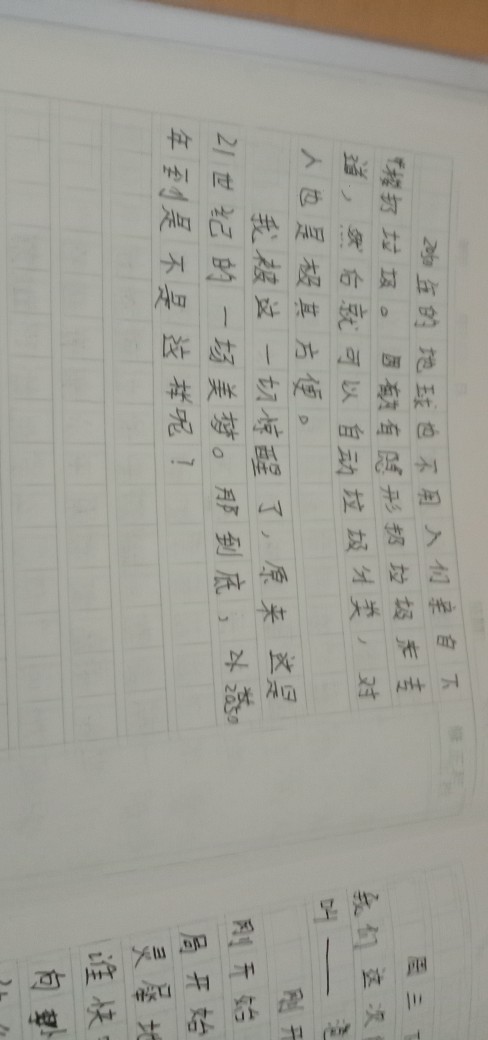 2050年的地球也不用人们亲自下
楼扔垃圾。因有隐形扔垃圾走
道,然后就可以自动垃圾分类,对
人也是极其方便。
我被这一切惊醒了,原来这是
21世纪的一场美梦。那到底、2050
年到是不是这样呢?
周三
我们这次
叫——
刚开
刚开始
局开始
灵犀地
谁快
向